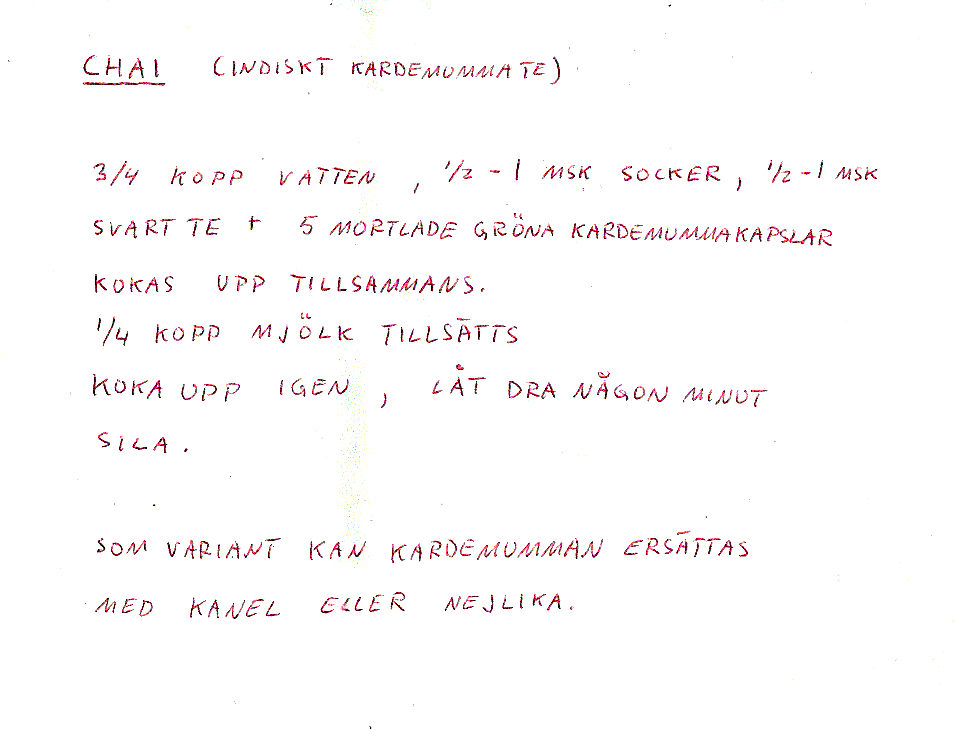 CHAI (INDISKT KARDEMUMMATE)
3/4 KOPP VATTEN, 1/2 - 1 MSK SOCKER, 1/2 - 1 MSK
SVART TE + 5 MORTLADE GRÖNA KARDEMUMMAKAPSLAR
KOKAS UPP TILLSAMMANS.
1/4 KOPP MJÖLK TILLSÄTTS
KOKA UPP IGEN, LÅT DRA NÅGON MINUT
SILA.
SOM VARIANT KAN KARDEMUMMAN ERSÄTTAS
MED KANEL ELLER NEJLIKA.